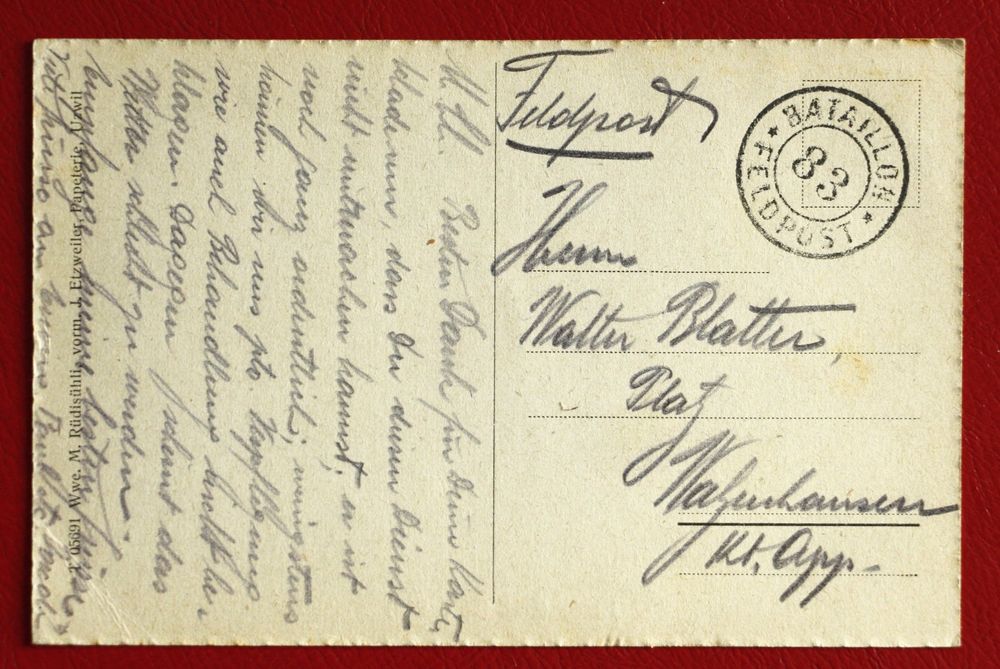 Feldpost
BATAILLON
83
FELDPOST
Herrn
Walter Blatter,
Platz
Walzenhausen
Kt. App.
M. Lb. Besten Dank für Deine Karte,
schade nur, dass Du diesen Dienst
nicht mitmachen kannst, er ist
noch ganz ordentlich; wenigstens
können wir uns pto Verpflegung
wie auch Behandlung nicht be-
klagen. Dagegen scheint das
Wetter schlecht zu werden.
Empfange meine besten Grüsse
05691 Wwe. M. Rüdisühli, vorm. J. Etzweiler, Papeterie, Uzwil